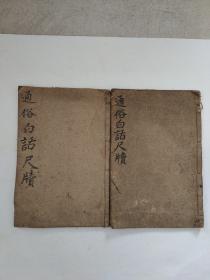 通俗白話尺牘
通俗白話尺牘